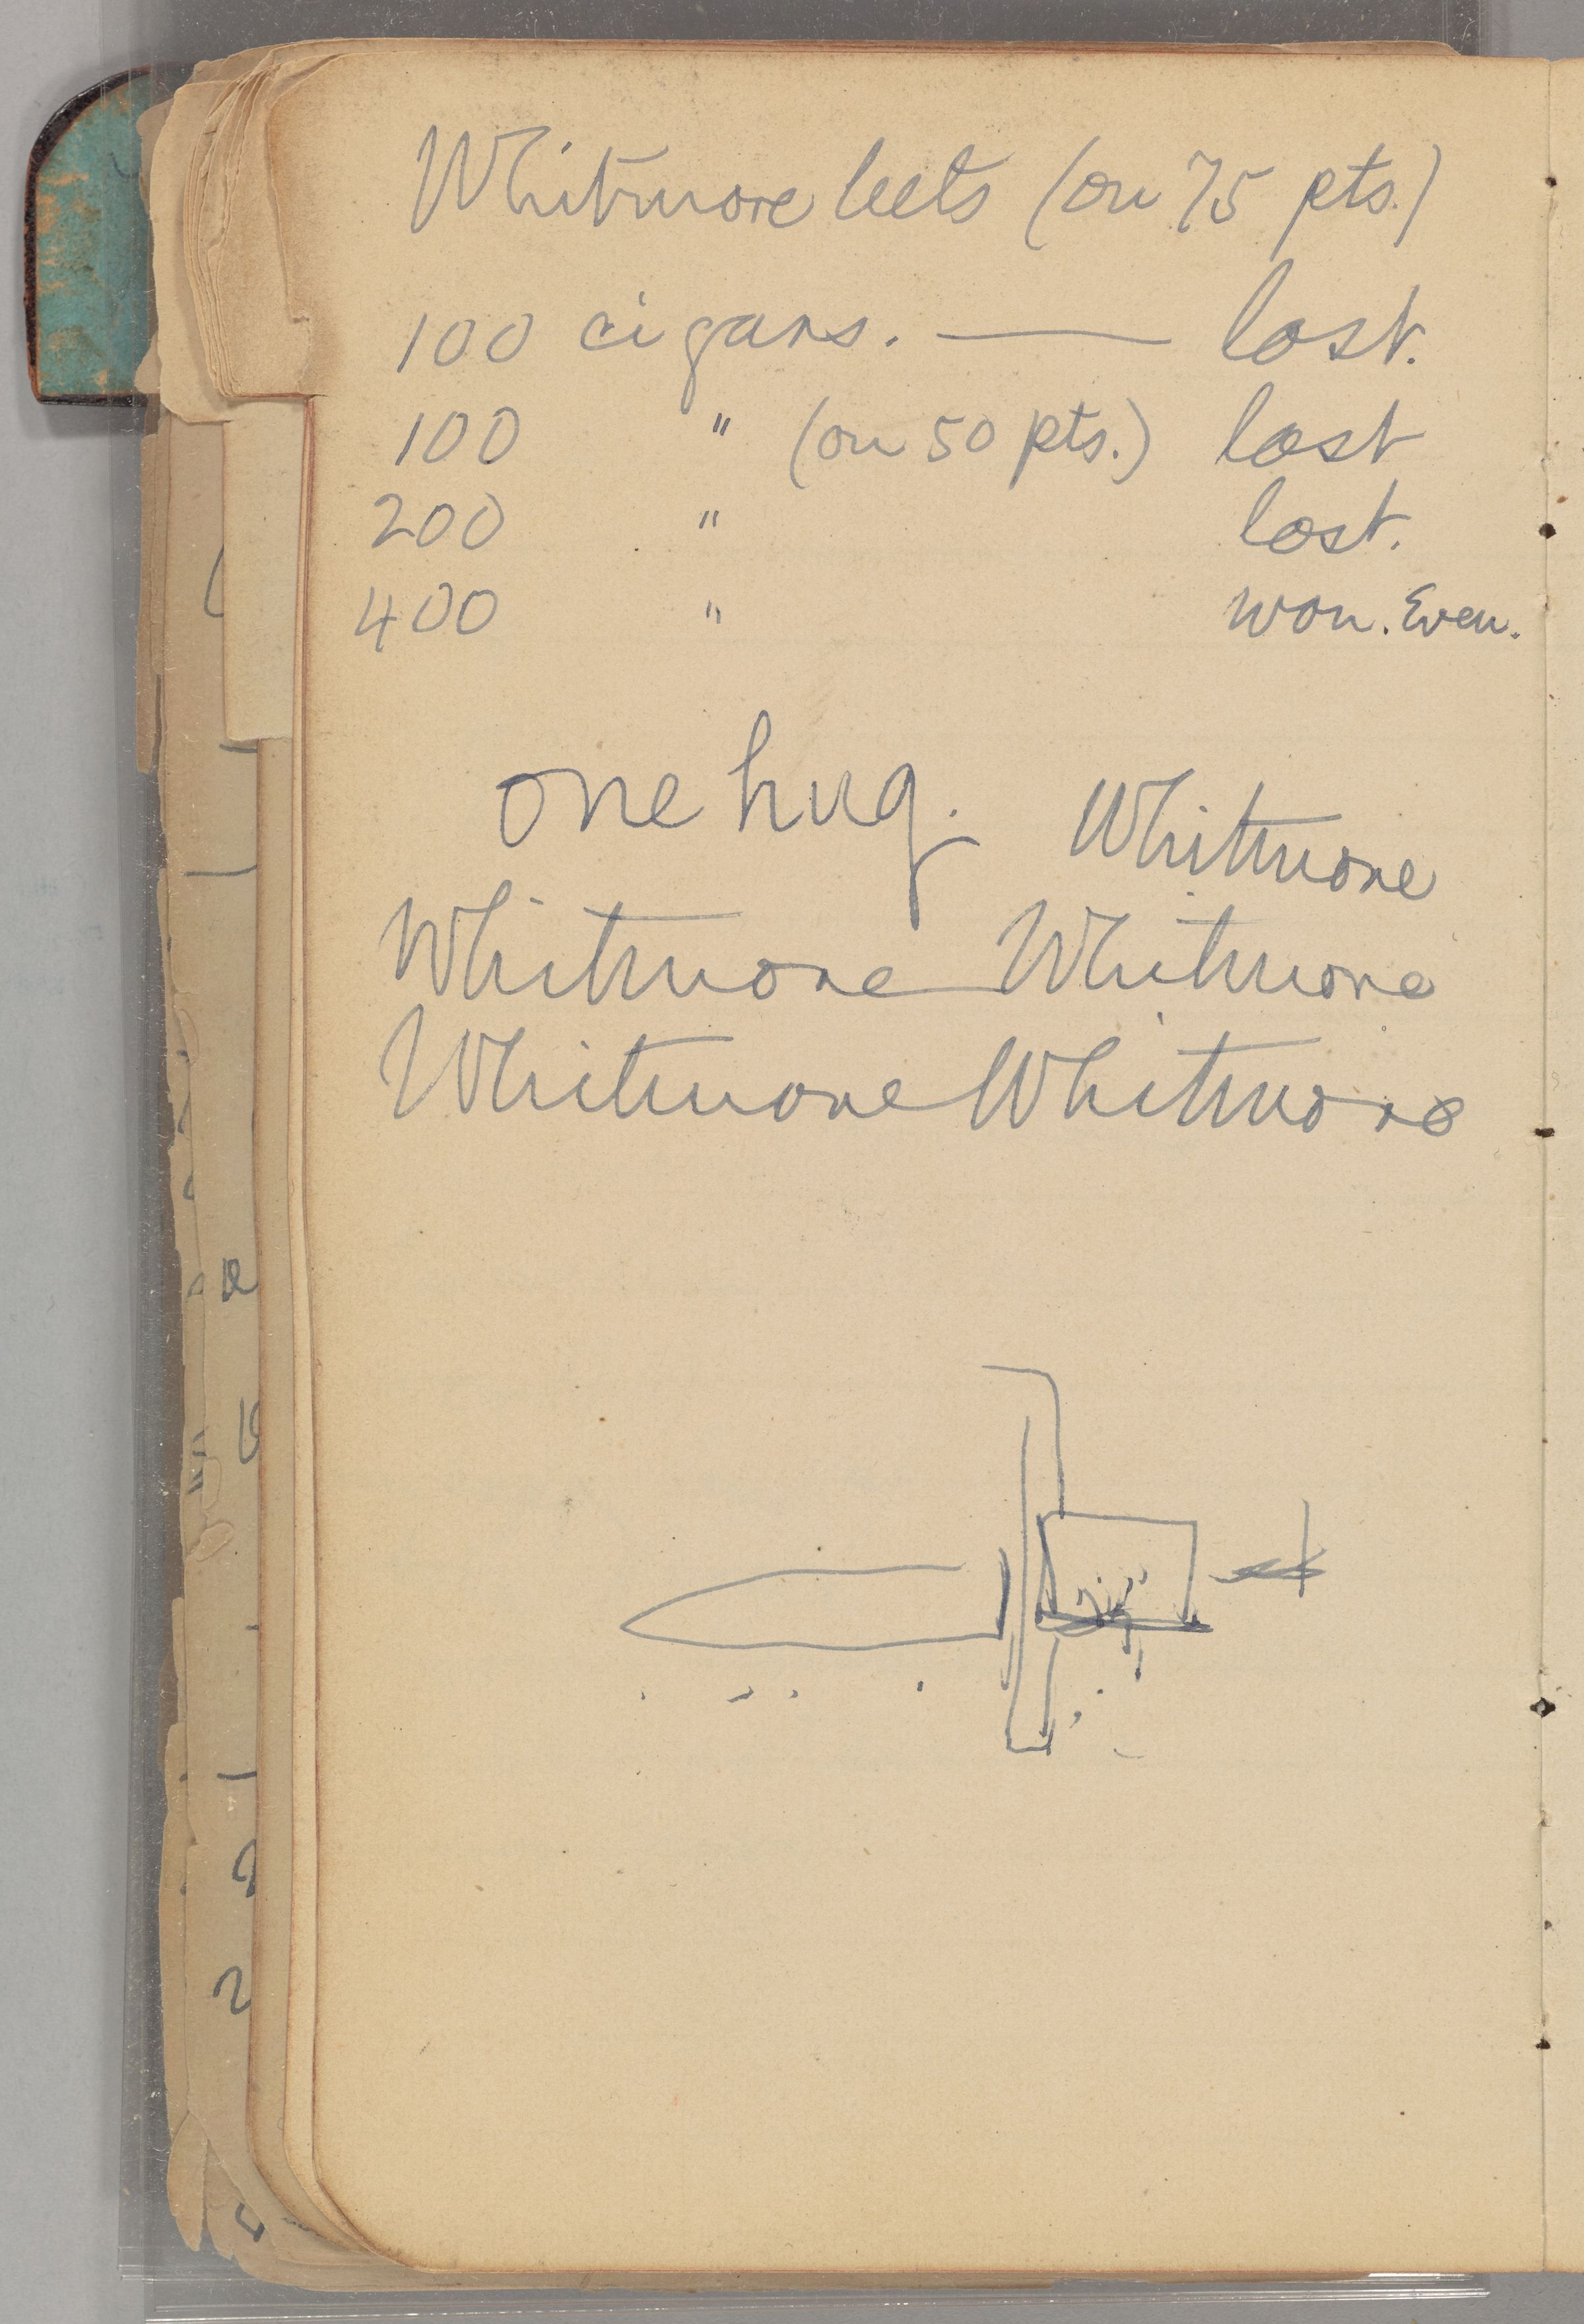 Whitmore bets (on 75 pts.)
100 cigars. — lost.
100 " (on 50 pts.) lost
200 " lost.
400 " won. Even.
one hug. Whitmore
Whitmore Whitmore
Whitmore Whitmore